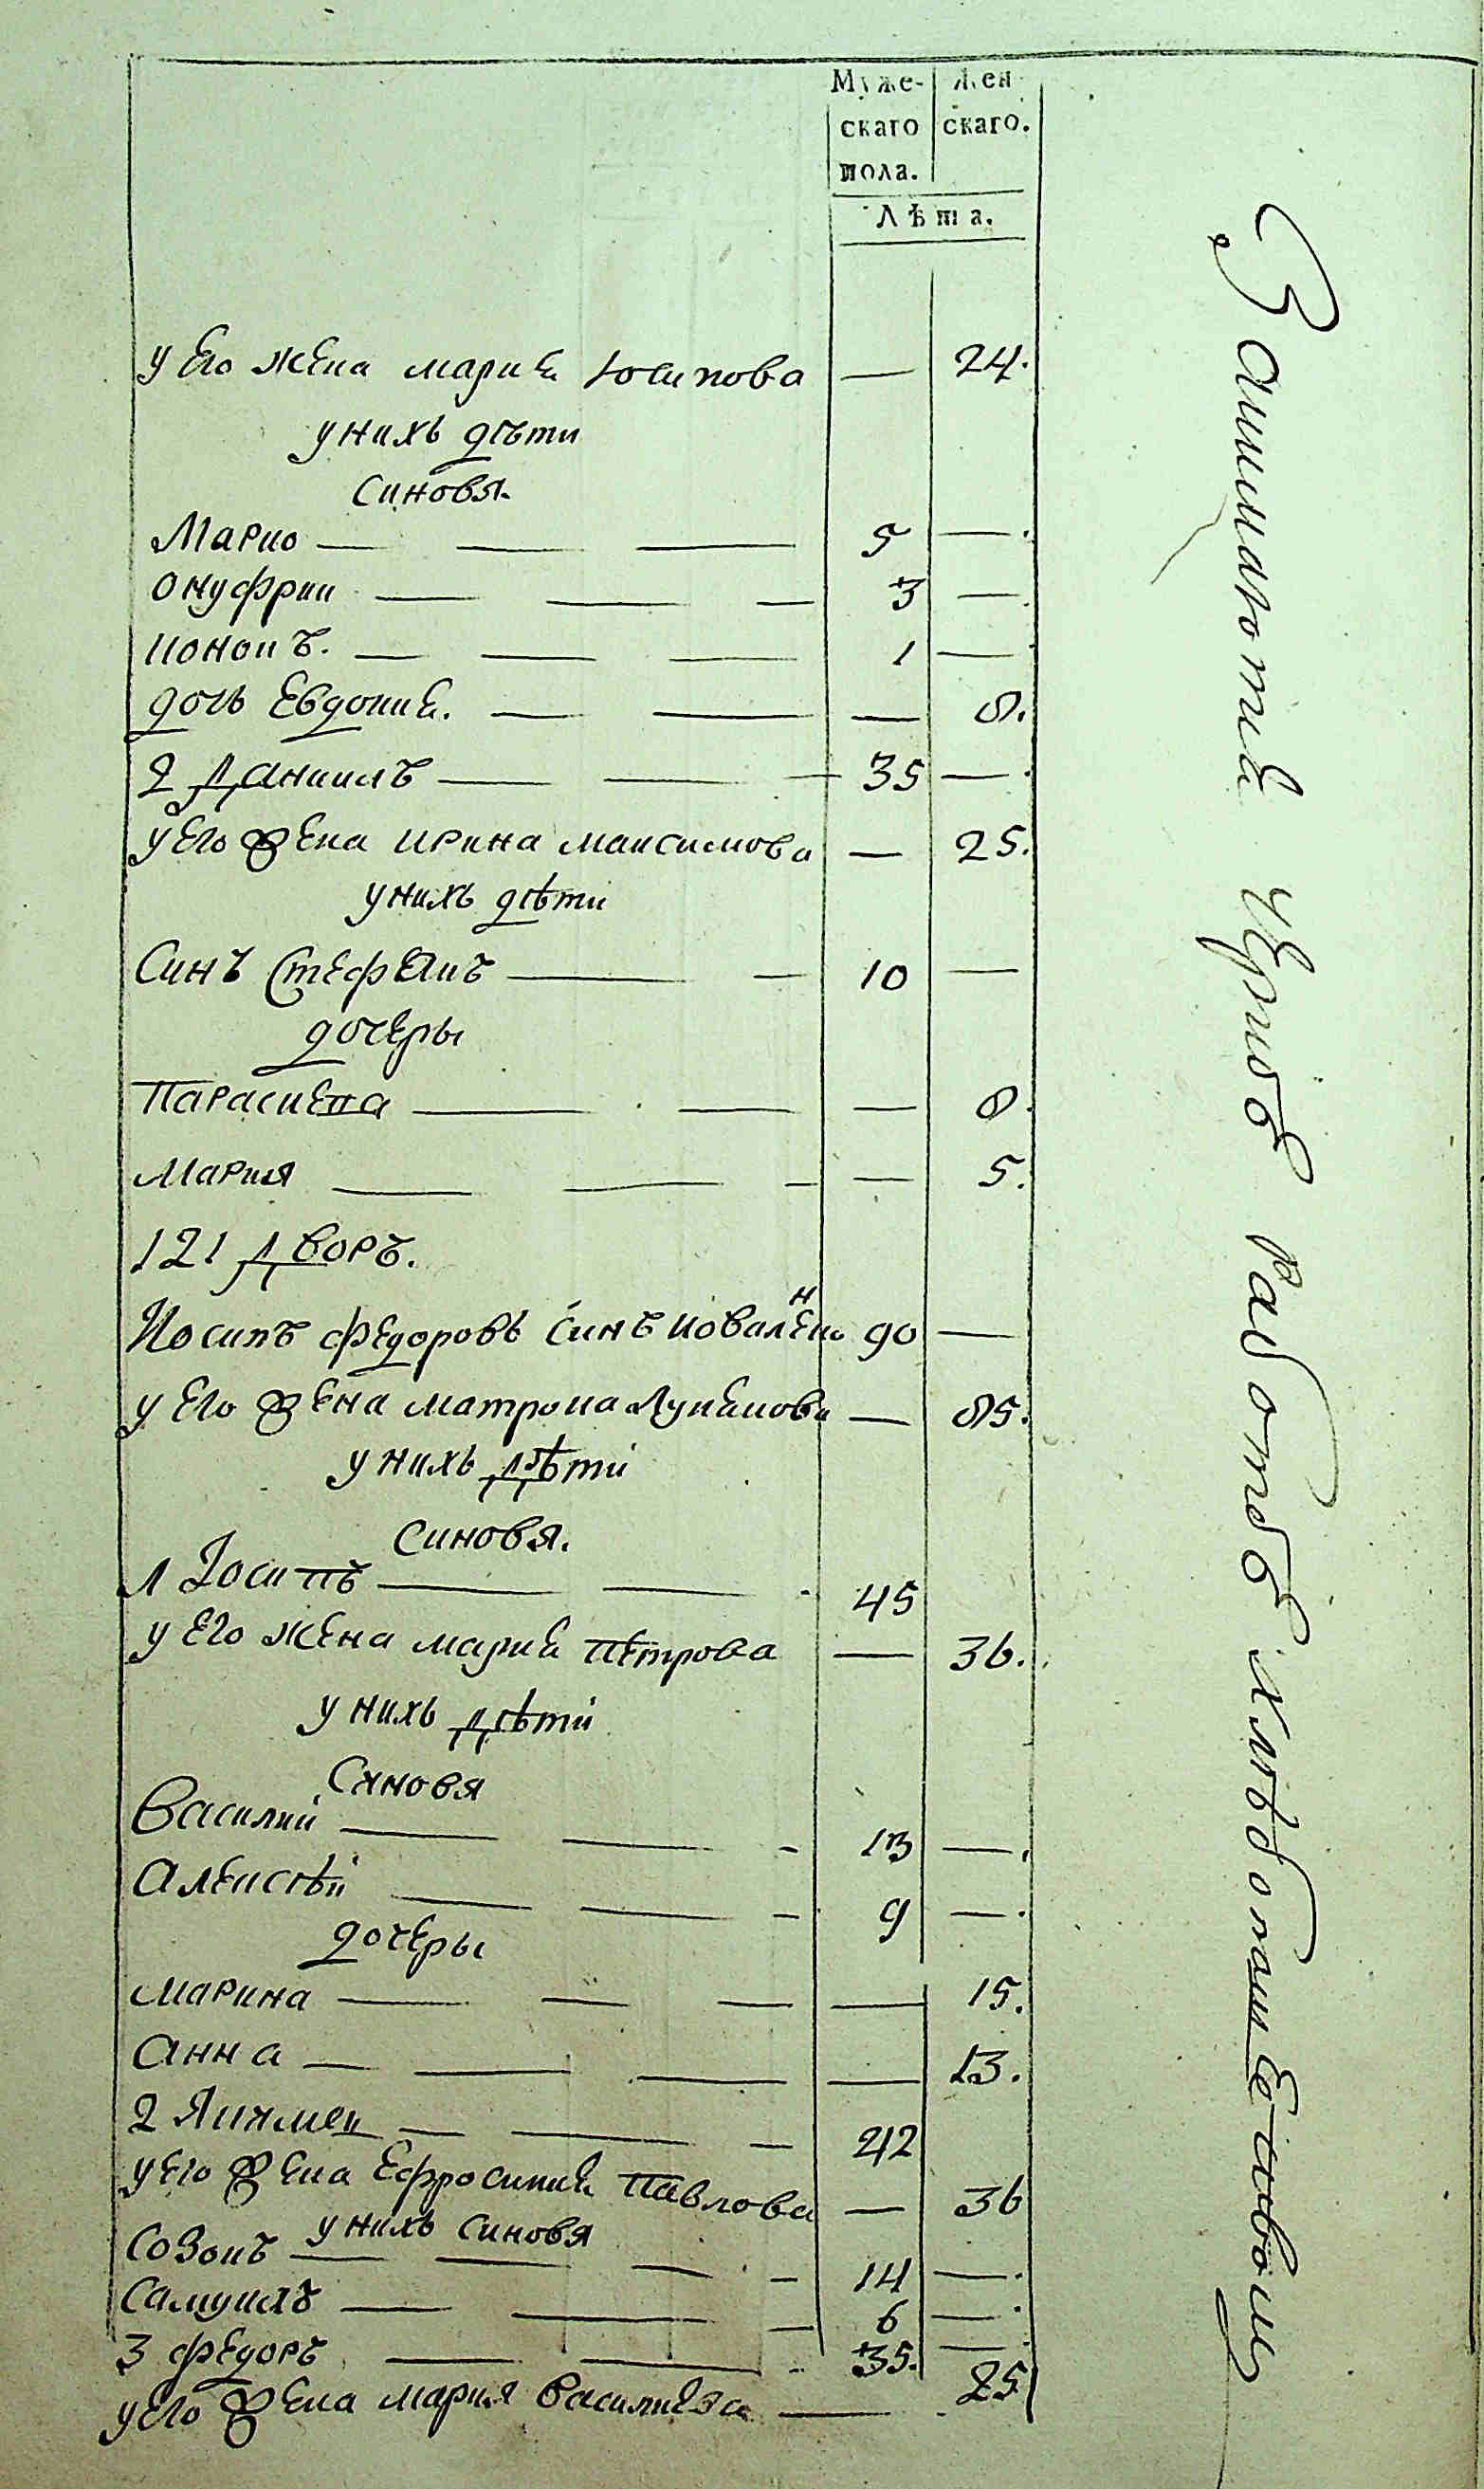 Муже- Жен-
скаго скаго.
пола.
Лѣта.
у его жена мария Юсипова — 24.
у нихъ дѣти
Синовя.
Марко — 5 —
Онуфрии — 3 —
Кононъ. — 1 —
дочь Евдокия. — 8.
2 Даниилъ — 35 —
у его жена Ирина Максимова — 25.
у нихъ дѣти
Синъ Стефанъ — 10 —
дочеры
Параскева — 8.
Мария — 5.
121 Дворъ.
Иосипъ Федоровъ Синъ Коваленко 90 —
у его жена матрона Лукянова — 85.
у нихъ дѣти
Синовя.
1 Иосипъ — 45
у его жена мария Петрова — 36.
у нихъ дѣти
Синовя
Василий — 13 —
Алексѣй — 9 —
дочеры
Марина — 15.
Анна — 13.
2 Якимен — 42
у его жена Ефросиния Павлова — 36
у нихъ Синовя
Созонъ — 14 —
Самуилъ — 6 —
3 Федоръ — 35. —
у его жена Мария Василиева — 25
Занимаются чорною работою хлѣбопашествомъ